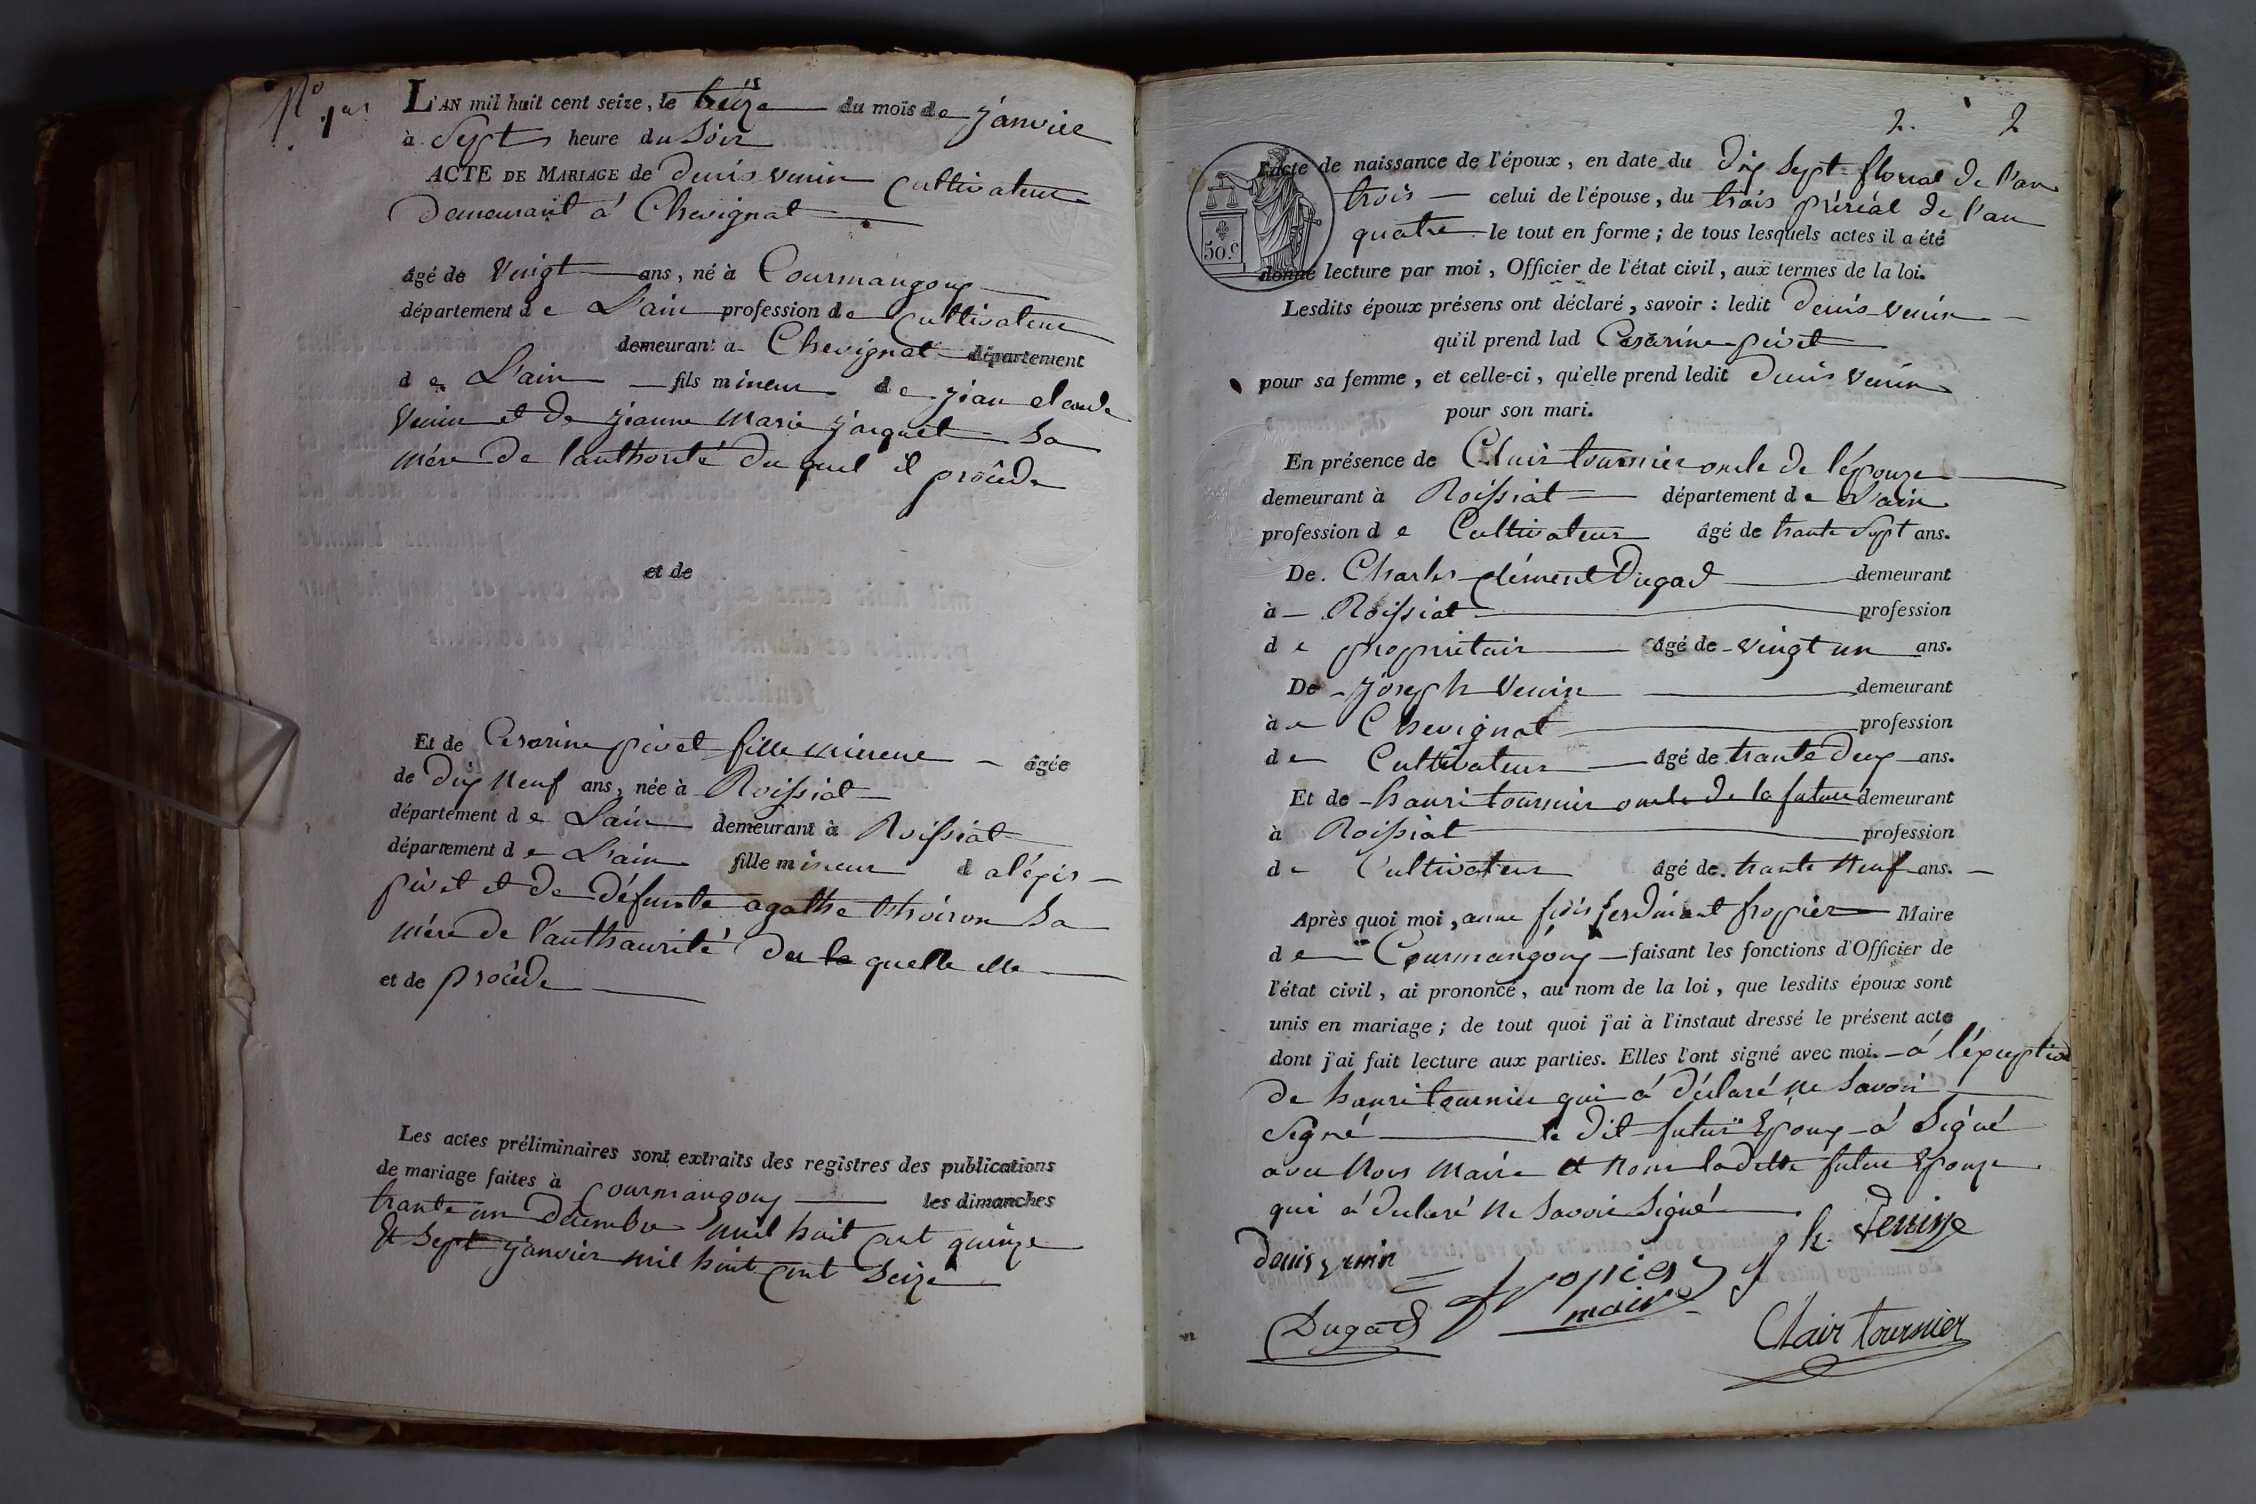 N.º 1er
L'AN mil huit cent seize, le treize du mois de janvier
à Sept heure du Soir
ACTE DE MARIAGE de denis venin Cultivateur
demeurant á Chevignat
âgé de Vingt ans, né à Courmangoux
département de L'ain profession de Cultivateur
demeurant à Chevignat département
de L'ain fils mineur de jean claude
Venin et de jeanne Marie jarquet Sa
mére de l'authorité du quel il procéde
et de
Et de Cesarine pivet fille mineure âgée
de dix Neuf ans, née à Roissiat
département de L'ain demeurant à Roissiat
département de L'ain fille mineur d'alépis
pivet et de défunte agathe thoiron Sa
mére de l'authaurité du la quelle elle
et de procéde
Les actes préliminaires sont extraits des registres des publications
de mariage faites à Courmangoux les dimanches
trante un décembre mil huit cent quinze
Et Sept janvier mil huit cent Seize
2. 2
l'acte de naissance de l'époux, en date du dix Sept floreal de l'an
trois celui de l'épouse, du trois préréal de l'an
quatre le tout en forme; de tous lesquels actes il a été
50.c
donné lecture par moi, Officier de l'état civil, aux termes de la loi.
Lesdits époux présens ont déclaré, savoir : ledit denis venin
qu'il prend lad Cesarine pivet
pour sa femme, et celle-ci, qu'elle prend ledit denis Venin
pour son mari.
En présence de Clair tournier oncle de l'épouze
demeurant à Roissiat département de L'ain
profession de Cultivateur âgé de trante Sept ans.
De Charles clément Dugad demeurant
à Roissiat profession
de propriétair âgé de vingt un ans.
De joseph Venin demeurant
à Chevignat profession
de Cultivateur âgé de trante deux ans.
Et de hanri tournier oncle de la future demeurant
à Roissiat profession
de Cultivateur âgé de trante Neuf ans.
Après quoi moi, anne fcois ferdinant fropier Maire
de Courmangoux faisant les fonctions d'Officier de
l'état civil, ai prononcé, au nom de la loi, que lesdits époux sont
unis en mariage; de tout quoi j'ai à l'instaut dressé le présent acte
dont j'ai fait lecture aux parties. Elles l'ont signé avec moi. á l'éxception
de hanri tournier qui á déclaré ne Savoir
Signé le dit futur Epoux á Signé
avec Nous Maire et Non ladette future Epouze
qui á declaré Ne Savoir Signé
denis venin
fropier maire
jh. Venin
Dugad
Clair tournier